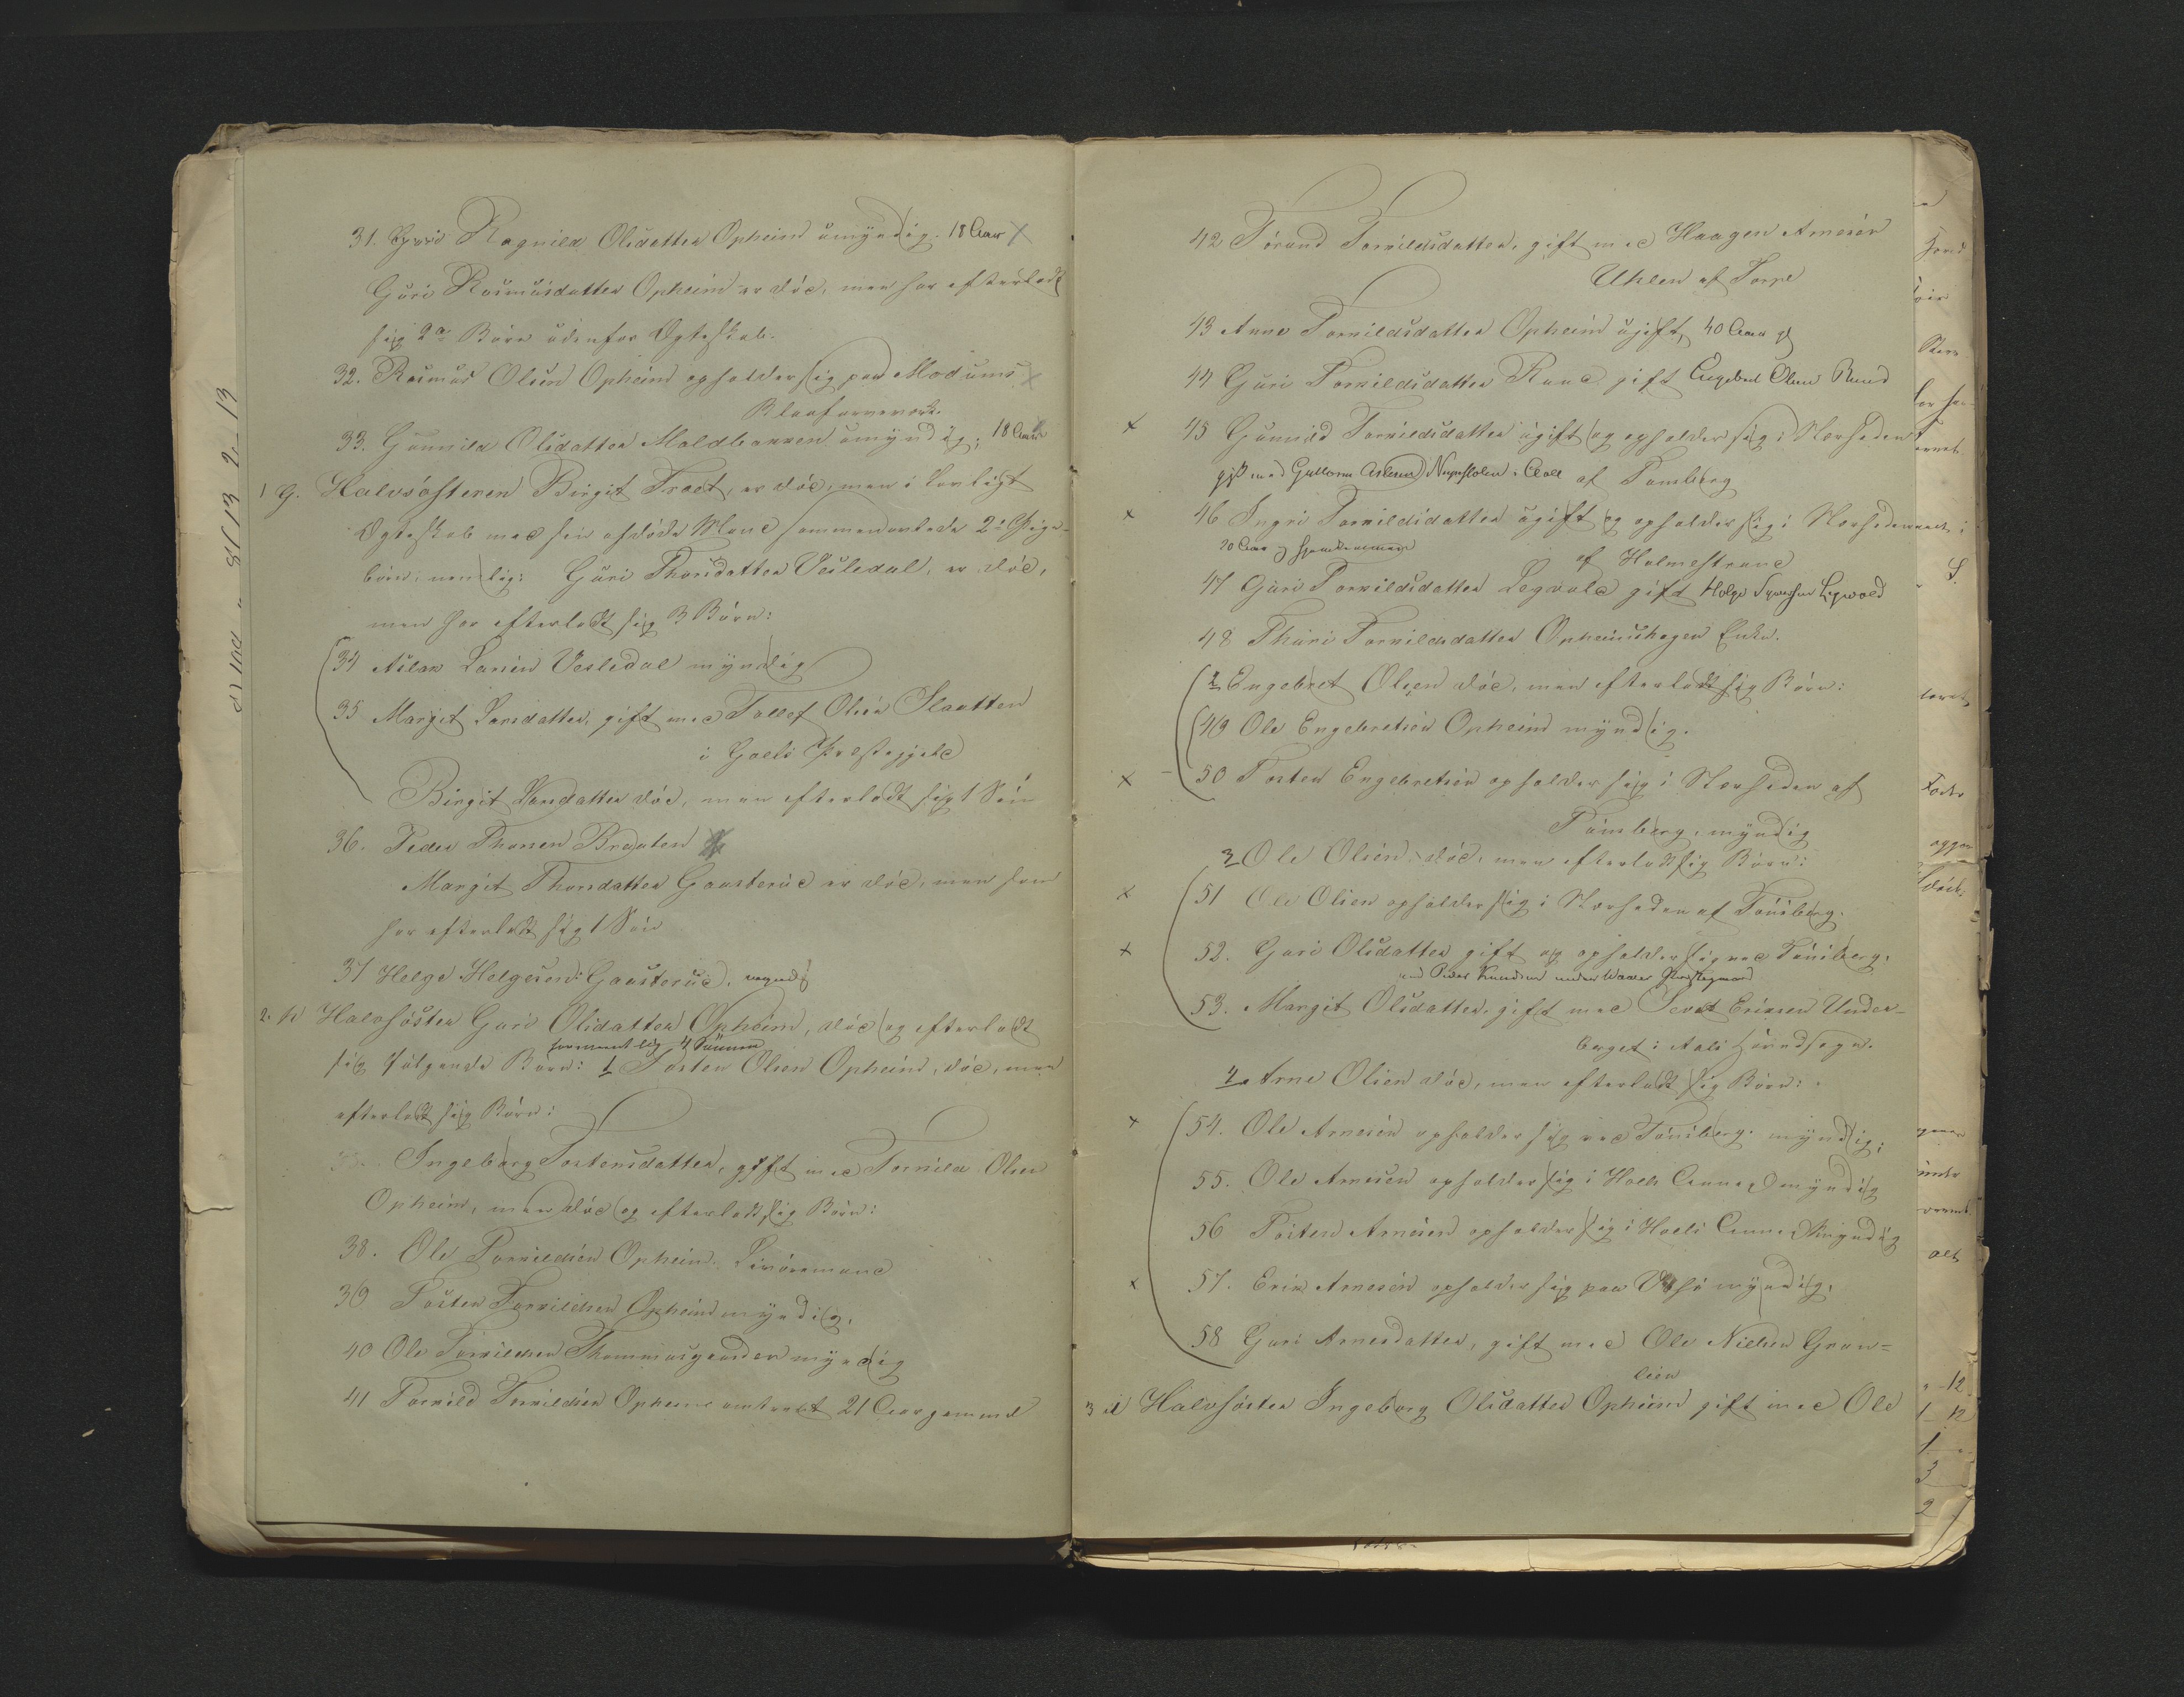 31. Ragnild Olsdatter Opheim umyndig. 18 Aar x
Guri Rasmusdatter Opheim er död, men har efterladt
sig 2de Börn udenfor Ægteskab.
32. Rasmus Olsen Opheim opholder sig paa Modums x
Blaafarveværk.
33. Gunnild Olsdatter Moldbakken umyndig, 18 Aar
1 g. Halvsösteren Birgit Traet, er död, men i lovligt
Ægteskab med sin afdöde Mand sammenavlede 2de Pige-
börn, nemlig: Guri Thorsdatter Vesledal, er död,
men har efterladt sig 3 Börn:
34 Aslak Larsen Vesledal myndig
35 Margit Larsdatter, gift med Tollef Olsen Slaatten
i Gols Præstegjeld
Birgit Larsdatter död, men efterladt sig 1 Sön
36. Peder Thorsen Braaten
Margit Thorsdatter Gausterud er död, men som
har efterladt sig 1 Sön
37 Helge Helgesen Gausterud. myndig
2. h Halvsöster Guri Olsdatter Opheim, död og efterladt
fornemmelig 4 Sönner
sig fölgende Börn: 1 Tosten Olsen Opheim, död, men
efterladt sig Börn:
Ingeborg Tostensdatter, gift med Torkild Olsen
Opheim, men död og efterladt sig Börn:
38. Ole Torkildsen Opheim.
39 Tosten Torkildsen Opheim myndig.
40 Ole Torkildsen Thommasgaarden myndig
41 Torkild Torkildsen Opheim omtrent 21 Aar gammel
42 Jörand Torkildsdatter, gift med Haagen Arnesen
Uhlen af Torpe
43 Anne Torkildsdatter Opheim ugift, 40 Aar
44 Guri Torkildsdatter Rund gift Engebret Olsen Rund
x 45 Gunild Torkildsdatter ugift og opholder sig i Nærheden
gift med Guttorm Aslesen i Aal af Tönsberg
x 46 Ingri Torkildsdatter ugift og opholder sig i Nærheden
20 Aar og hjemkommen
af Holmestrand
47 Guri Torkildsdatter Legvold gift Helge Legvold
48 Thuri Torkildsdatter Opheimshagen Enke.
2 Engebret Olsen död, men efterladt sig Börn:
49 Ole Engebretsen Opheim myndig.
x 50 Tosten Engebretsen opholder sig i Nærheden af
Tönsberg, myndig
3 Ole Olsen död, men efterladt sig Börn:
x 51 Ole Olsen opholder sig i Nærheden af Tönsberg.
x 52. Guri Olsdatter gift og opholder sig ved Tönsberg.
med Peder Knudsen under Waaler
53. Margit Olsdatter gift med Sevat Eriksen Under-
berget i Aals Hovedsogn.
4 Arne Olsen död, men efterladt sig Börn:
x 54. Ole Arnesen opholder sig ved Tönsberg. myndig;
55. Ole Arnesen opholder sig i Hols Annex myndig
56 Tosten Arnesen opholder sig i Hols Annex myndig
x 57. Erik Arnesen opholder sig paa myndig.
58 Guri Arnesdatter, gift med Ole Nielsen Grön=
lien
3 d Halvsöster Ingeborg Olsdatter Opheim gift med Ole